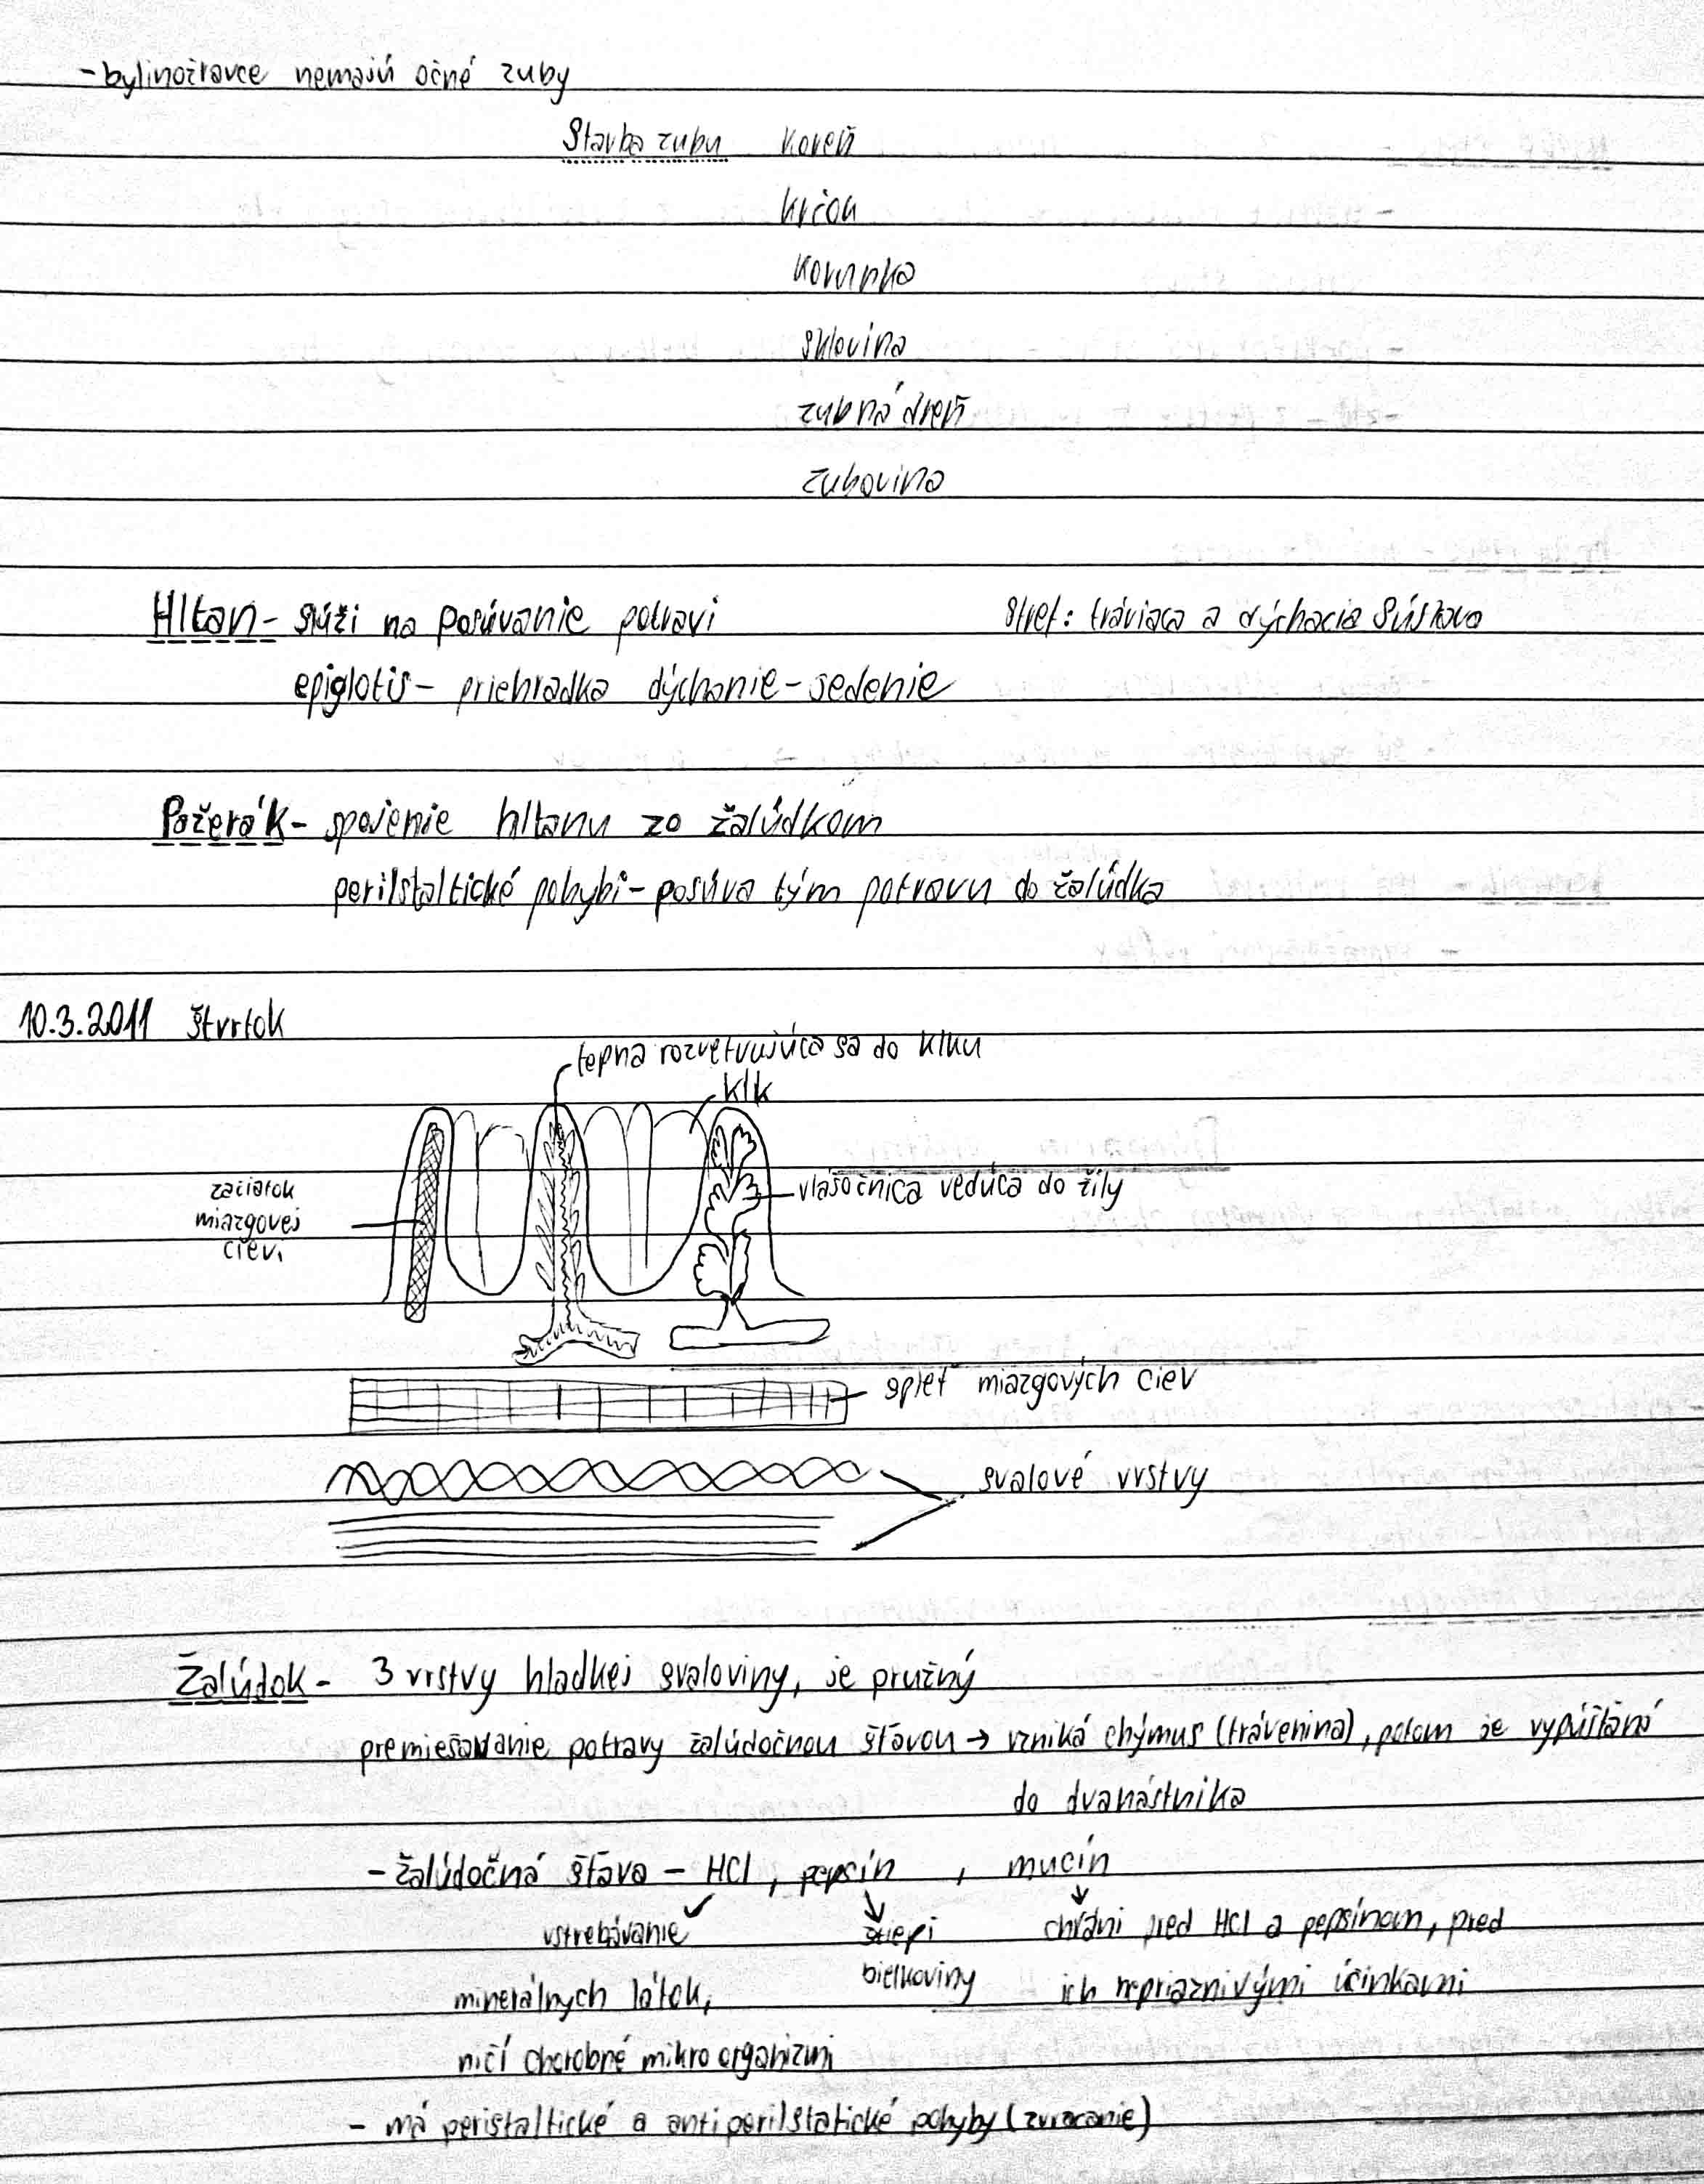 -bylinožravce nemajú očné zuby
Stavba zubu koreň
krčok
korunka
sklovina
zubná dreň
zubovina
Hltan- slúži na posúvanie potravi stret: tráviaca a dýchacia sústava
epiglotis- priehradka dýchanie-jedenie
Požerák- spojenie hltanu zo žalúdkom
perilstaltické pohybi-posúva tým potravu do žalúdka
10.3.2011 štvrtok
tepna rozvetvujúca sa do klku
klk
začiatok
miazgovej
ciev.
vlásočnica vedúca do žily
spleť miazgových ciev
svalové vrstvy
Žalúdok- 3 vrstvy hladkej svaloviny, je pružný
premiešavanie potravy žalúdočnou šťavou → vzniká chýmus (trávenina), potom je vypúšťaná
do dvanástnika
-žalúdočná šťava - HCl, pepsín , mucín
vstrebávanie štiepi chráni pred HCl a pepsínom, pred
minerálnych látok, bielkoviny ich nepriaznivými účinkami
ničí chorobné mikroorganizmi
- má peristaltické a antiperilstatické pohyby (zvracanie)